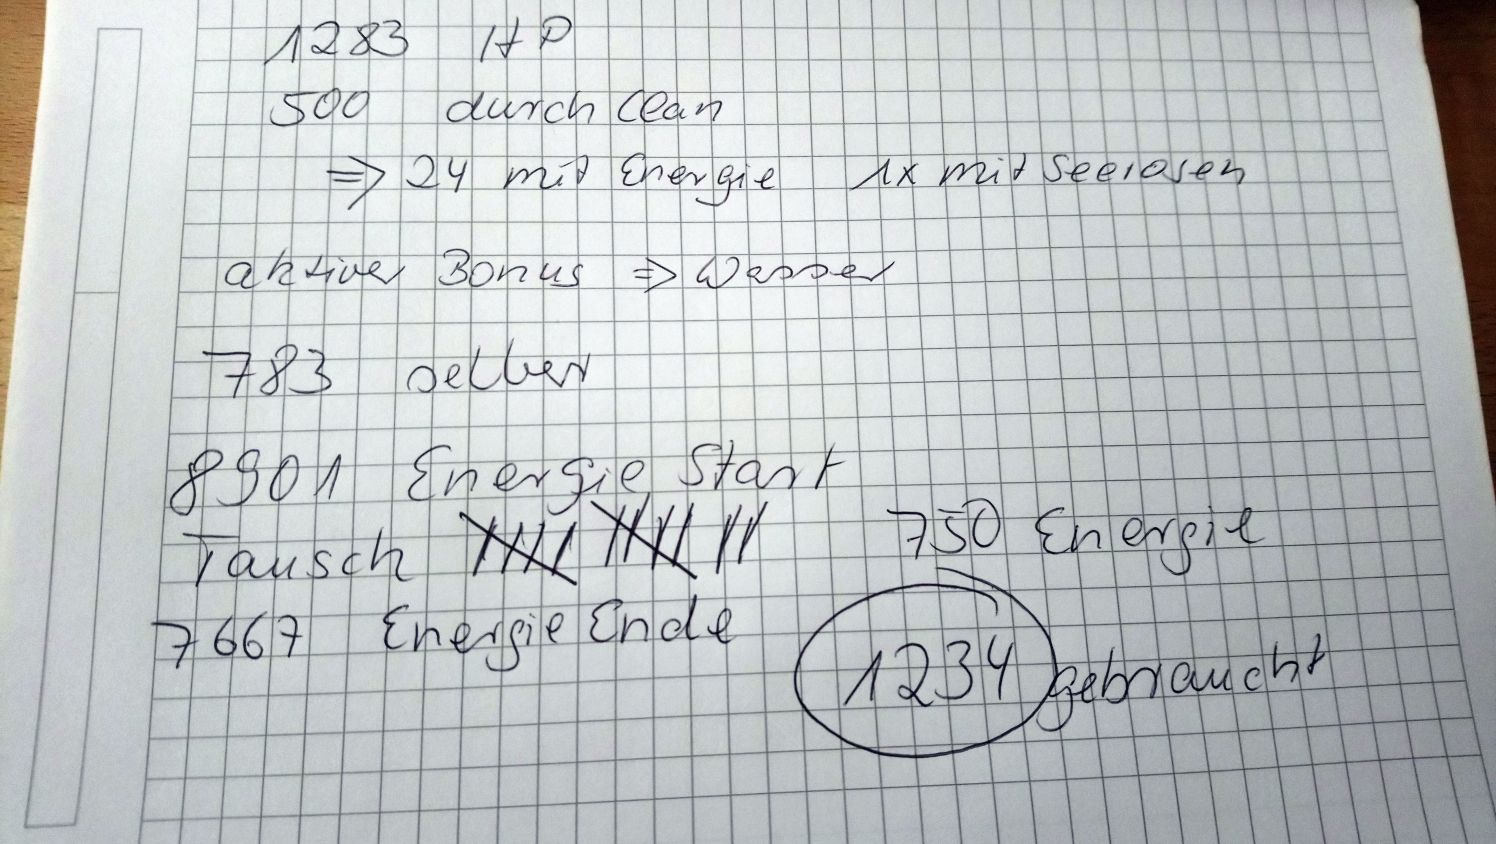 1283 HP
500 durch Clan
=> 24 mit Energie 1x mit Seerosen
aktiver Bonus => Wasser
783 selber
8901 Energie Start
Tausch |||| |||| || 750 Energie
7667 Energie Ende
1234 gebraucht